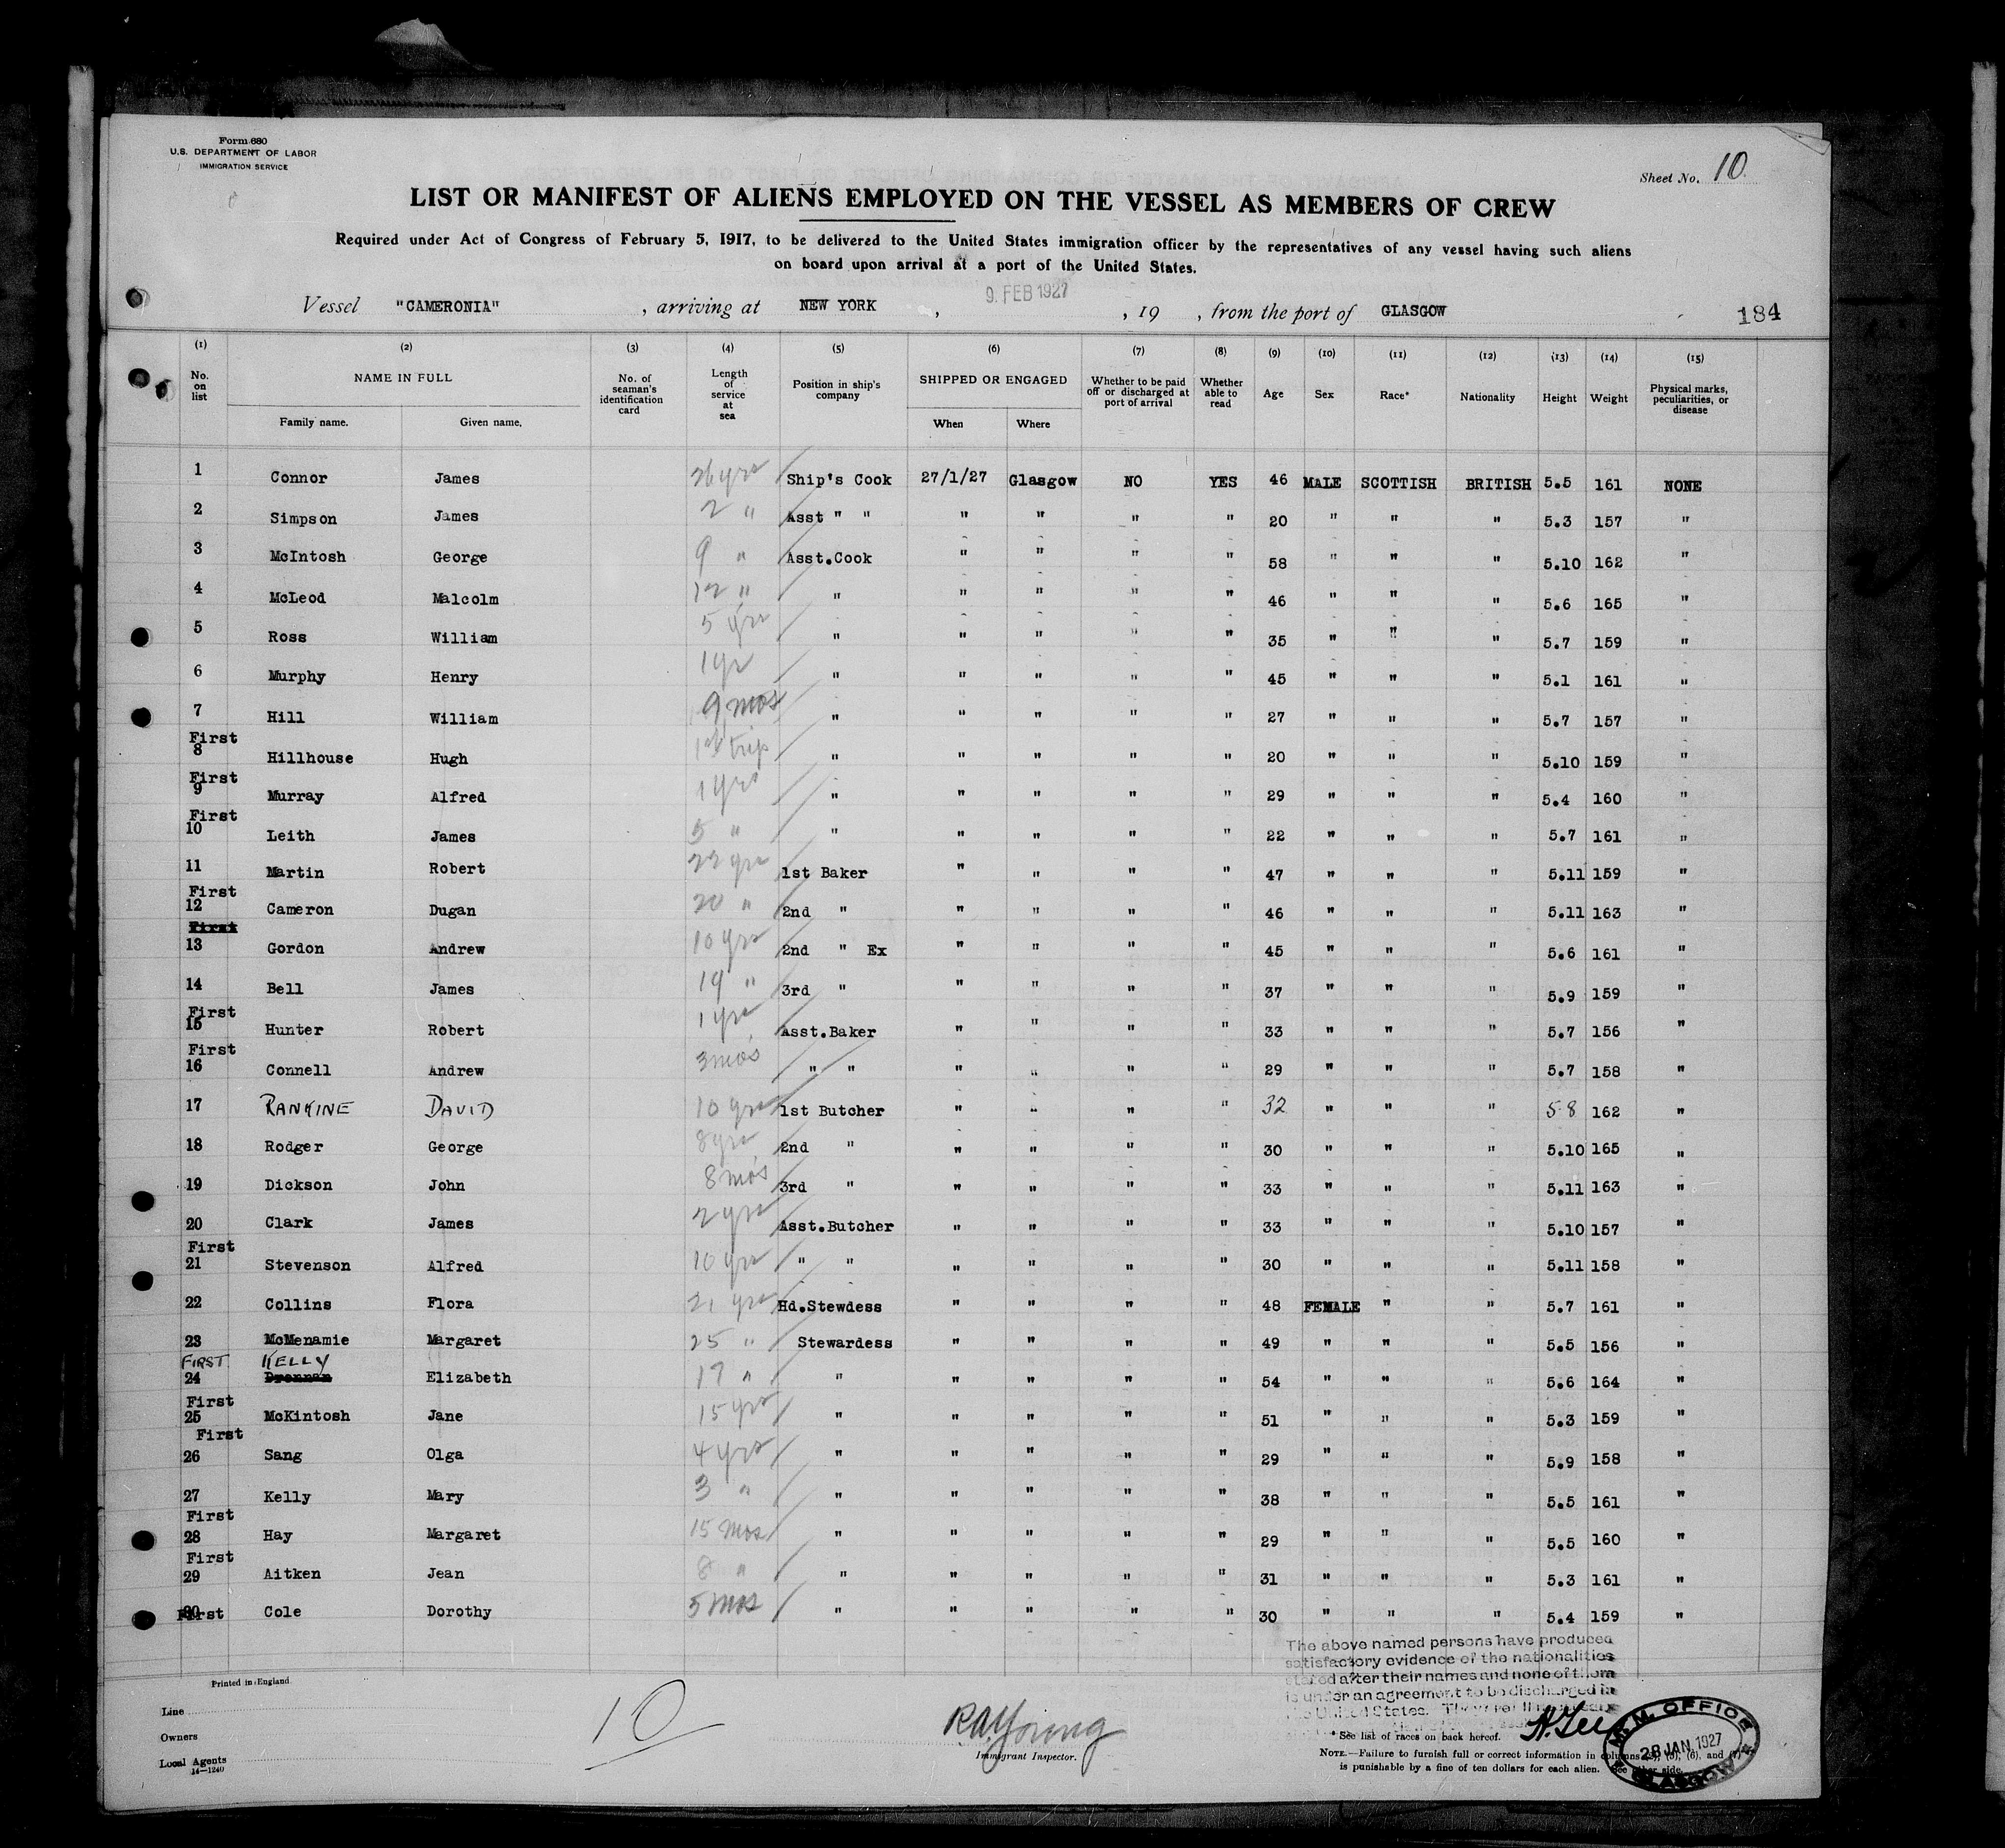 Form 680
U.S. DEPARTMENT OF LABOR
IMMIGRATION SERVICE
Sheet No. 10
LIST OR MANIFEST OF ALIENS EMPLOYED ON THE VESSEL AS MEMBERS OF CREW
Required under Act of Congress of February 5, 1917, to be delivered to the United States immigration officer by the representatives of any vessel having such aliens
on board upon arrival at a port of the United States.
9 FEB 1927
Vessel "CAMERONIA" , arriving at NEW YORK , , 19 , from the port of GLASGOW 184
(1) (2) (3) (4) (5) (6) (7) (8) (9) (10) (11) (12) (13) (14) (15)
No. on list NAME IN FULL Family name. Given name. No. of seaman's identification card Length of service at sea Position in ship's company SHIPPED OR ENGAGED When Where Whether to be paid off or discharged at port of arrival Whether able to read Age Sex Race* Nationality Height Weight Physical marks, peculiarities, or disease
1 Connor James 26 yrs Ship's Cook 27/1/27 Glasgow NO YES 46 MALE SCOTTISH BRITISH 5.5 161 NONE
2 Simpson James 2 " Asst " " " " " " 20 " " " 5.3 157 "
3 McIntosh George 9 " Asst.Cook " " " " 58 " " " 5.10 162 "
4 McLeod Malcolm 12 " " " " " " 46 " " " 5.6 165 "
5 Ross William 5 yrs " " " " " 35 " " " 5.7 159 "
6 Murphy Henry 1 yr " " " " " 45 " " " 5.1 161 "
7 Hill William 9 mos " " " " " 27 " " " 5.7 157 "
First
8 Hillhouse Hugh 1st trip " " " " " 20 " " " 5.10 159 "
First
9 Murray Alfred 1 yrs " " " " " 29 " " " 5.4 160 "
First
10 Leith James 5 " " " " " " 22 " " " 5.7 161 "
11 Martin Robert 22 yrs 1st Baker " " " " 47 " " " 5.11 159 "
First
12 Cameron Dugan 20 " 2nd " " " " " 46 " " " 5.11 163 "
First
13 Gordon Andrew 10 yrs 2nd " Ex " " " " 45 " " " 5.6 161 "
14 Bell James 19 " 3rd " " " " " 37 " " " 5.9 159 "
First
15 Hunter Robert 1 yrs Asst.Baker " " " " 33 " " " 5.7 156 "
First
16 Connell Andrew 3 mos " " " " " " 29 " " " 5.7 158 "
17 RANKINE DAVID 10 yrs 1st Butcher " " " " 32 " " " 5 8 162 "
18 Rodger George 8 yrs 2nd " " " " " 30 " " " 5.10 165 "
19 Dickson John 8 mos 3rd " " " " " 33 " " " 5.11 163 "
20 Clark James 2 yrs Asst.Butcher " " " " 33 " " " 5.10 157 "
First
21 Stevenson Alfred 10 yrs " " " " " " 30 " " " 5.11 158 "
22 Collins Flora 21 yrs Hd.Stewdess " " " " 48 FEMALE " " 5.7 161 "
23 McMenamie Margaret 25 " Stewardess " " " " 49 " " " 5.5 156 "
FIRST KELLY
24 Drennan Elizabeth 17 " " " " " " 54 " " " 5.6 164 "
First
25 McKintosh Jane 15 yrs " " " " " 51 " " " 5.3 159 "
First
26 Sang Olga 4 yrs " " " " " 29 " " " 5.9 158 "
27 Kelly Mary 3 " " " " " " 38 " " " 5.5 161 "
First
28 Hay Margaret 15 mos " " " " " 29 " " " 5.5 160 "
First
29 Aitken Jean 8 " " " " " " 31 " " " 5.3 161 "
30 First Cole Dorothy 5 mos " " " " " 30 " " " 5.4 159 "
The above named persons have produced
satisfactory evidence of the nationalities
stated after their names and none of them
is under an agreement to be discharged in
the United States.
Printed in England
Line
Owners
Local Agents
14—1240
10
R.A. Young
Immigrant Inspector.
* See list of races on back hereof.
NOTE.—Failure to furnish full or correct information in columns (5), (6), and (7)
is punishable by a fine of ten dollars for each alien. See other side.
M.M. OFFICE
28 JAN 1927
GLASGOW